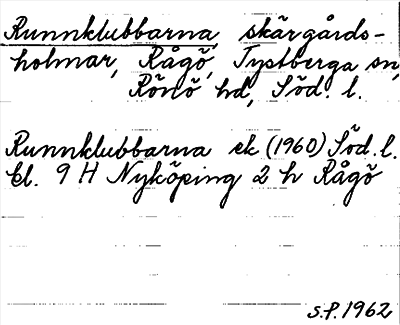 Runnklubbarna, skärgårds-
holmar, Rågö, Tystberga sn,
Rönö hd, Söd. l.
Runnklubbarna ek (1960) Söd. l.
bl. 9 H Nyköping 2 h Rågö
S.P. 1962